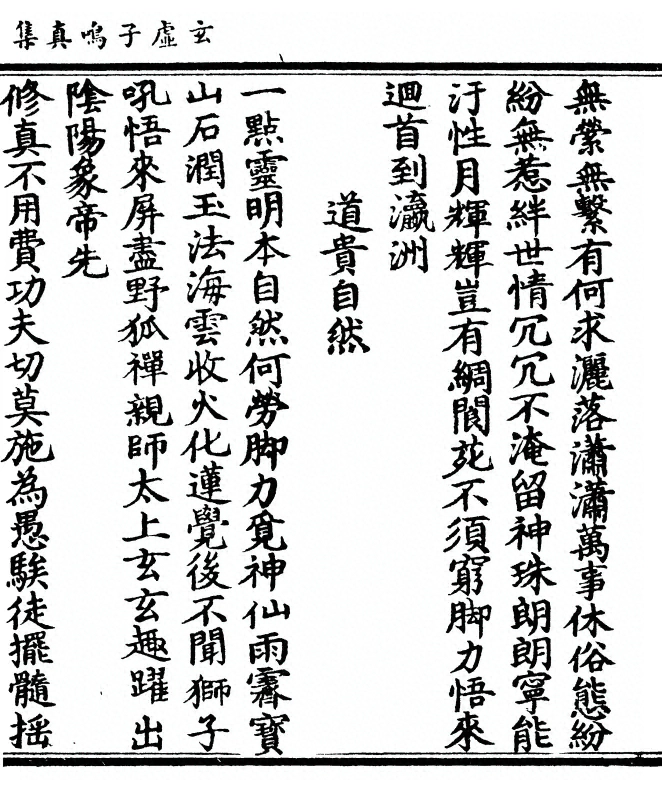 玄虛子鳴真集
無縈無繫有何求灑落瀟瀟萬事休俗態紛
紛無惹絆世情冗冗不淹留神珠朗朗寧能
汙性月輝輝豈有綢閬苑不須窮脚力悟來
迴首到瀛洲
道貴自然
一點靈明本自然何勞脚力覓神仙雨霽寶
山石潤玉法海雲收火化蓮覺後不聞獅子
吼悟來屏盡野狐禪親師太上玄玄趣躍出
陰陽象帝先
修真不用費功夫切莫施為愚騃徒擺髓揺